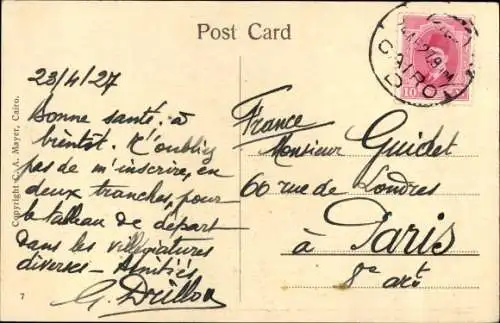 Post Card
23/4/27
Bonne santé. à
bientôt. N'oubliez
pas de m'inscrire, en
deux tranches, pour
le tableau de départ
dans les villégiatures
diverses - Amitiés
G. Drillon
France
Monsieur Guidet
60 rue de Londres
à Paris
8e arrt
CAIRO
10
Copyright C. A. Mayer, Cairo.
7